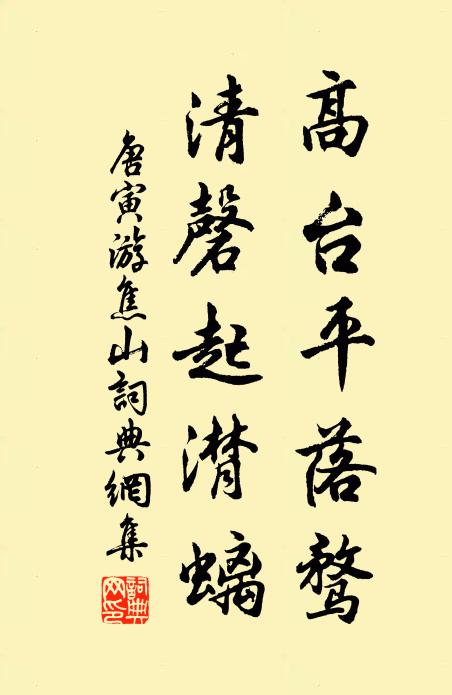 髙台平落鹜
清磬起潛螭
唐寅游焦山詞典網集
詞典网印